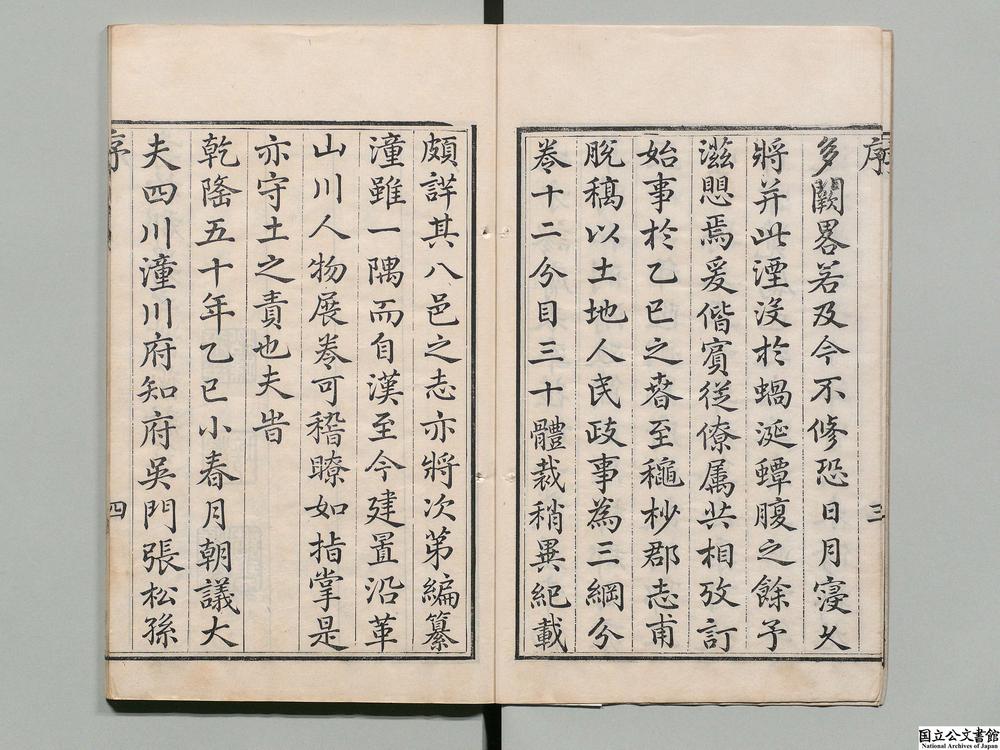 序
三
多闕畧若及今不修恐日月寖久
將并此湮沒於蝸涎蟫腹之餘予
滋懼焉爰偕賓從僚属共相攷訂
始事於乙巳之春至龝杪郡志甫
脫稿以土地人民政事為三綱分
卷十二分目三十體裁稍異紀載
頗詳其八邑之志亦將次第編纂
潼雖一隅而自漢至今建置沿革
山川人物展卷可稽瞭如指掌是
亦守土之責也夫旹
乾隆五十年乙巳小春月朝議大
夫四川潼川府知府吳門張松孫
序
四
国立公文書館
National Archives of Japan